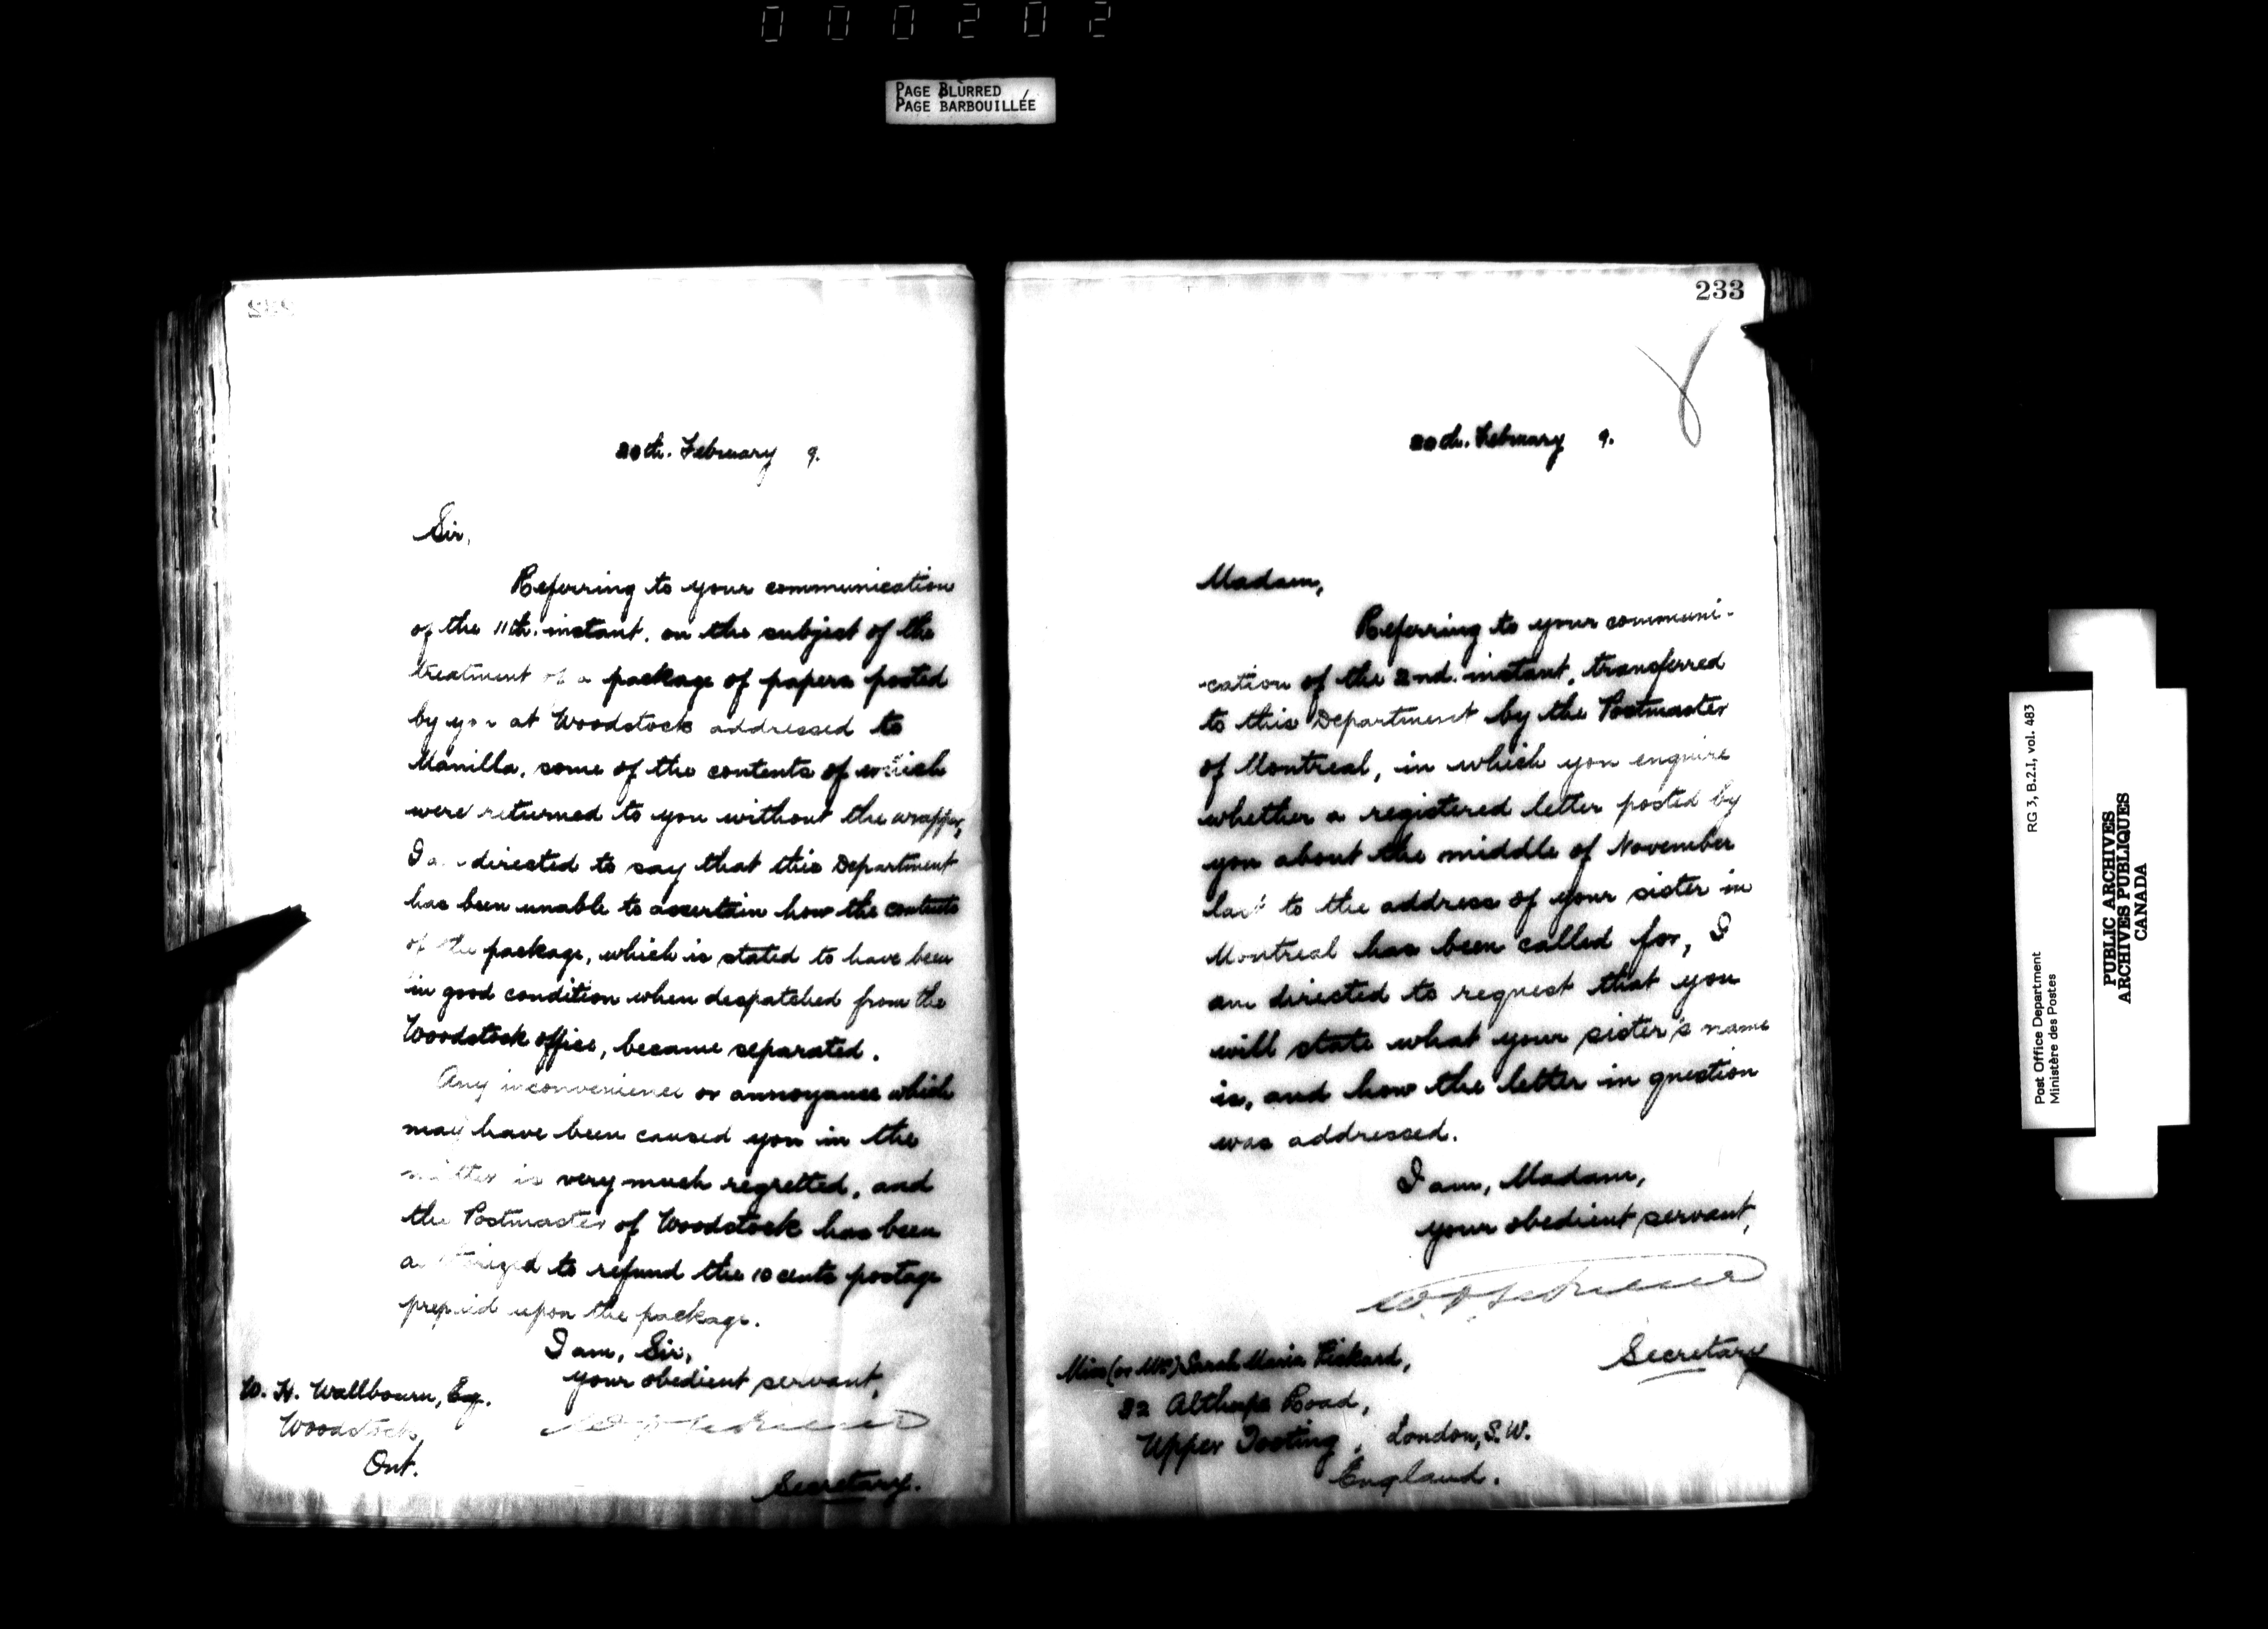 000202
PAGE BLURRED
PAGE BARBOUILLÉE
20th. February 9.
Sir,
Referring to your communication
of the 11th. instant, on the subject of the
treatment of a package of papers posted
by you at Woodstock addressed to
Manilla, some of the contents of which
were returned to you without the wrapper,
I am directed to say that this Department
has been unable to ascertain how the contents
of the package, which is stated to have been
in good condition when despatched from the
Woodstock office, became separated.
Any inconvenience or annoyance which
may have been caused you in the
matter is very much regretted, and
the Postmaster of Woodstock has been
authorized to refund the 10 cents postage
prepaid upon the package.
I am, Sir,
your obedient servant,
W. H. Wallbourn, Esq.
Woodstock,
Ont.
Secretary.
233
20th. February 9.
Madam,
Referring to your communi-
-cation of the 2nd. instant, transferred
to this Department by the Postmaster
of Montreal, in which you enquire
whether a registered letter posted by
you about the middle of November
last to the address of your sister in
Montreal has been called for, I
am directed to request that you
will state what your sister's name
is, and how the letter in question
was addressed.
I am, Madam,
your obedient servant,
Secretary
Miss (or Mrs) Sarah Maria Pickard,
32 Althorpe Road,
Upper Tooting, London, S.W.
England.
Post Office Department RG 3, B.2.I, vol. 483
Ministère des Postes
PUBLIC ARCHIVES
ARCHIVES PUBLIQUES
CANADA